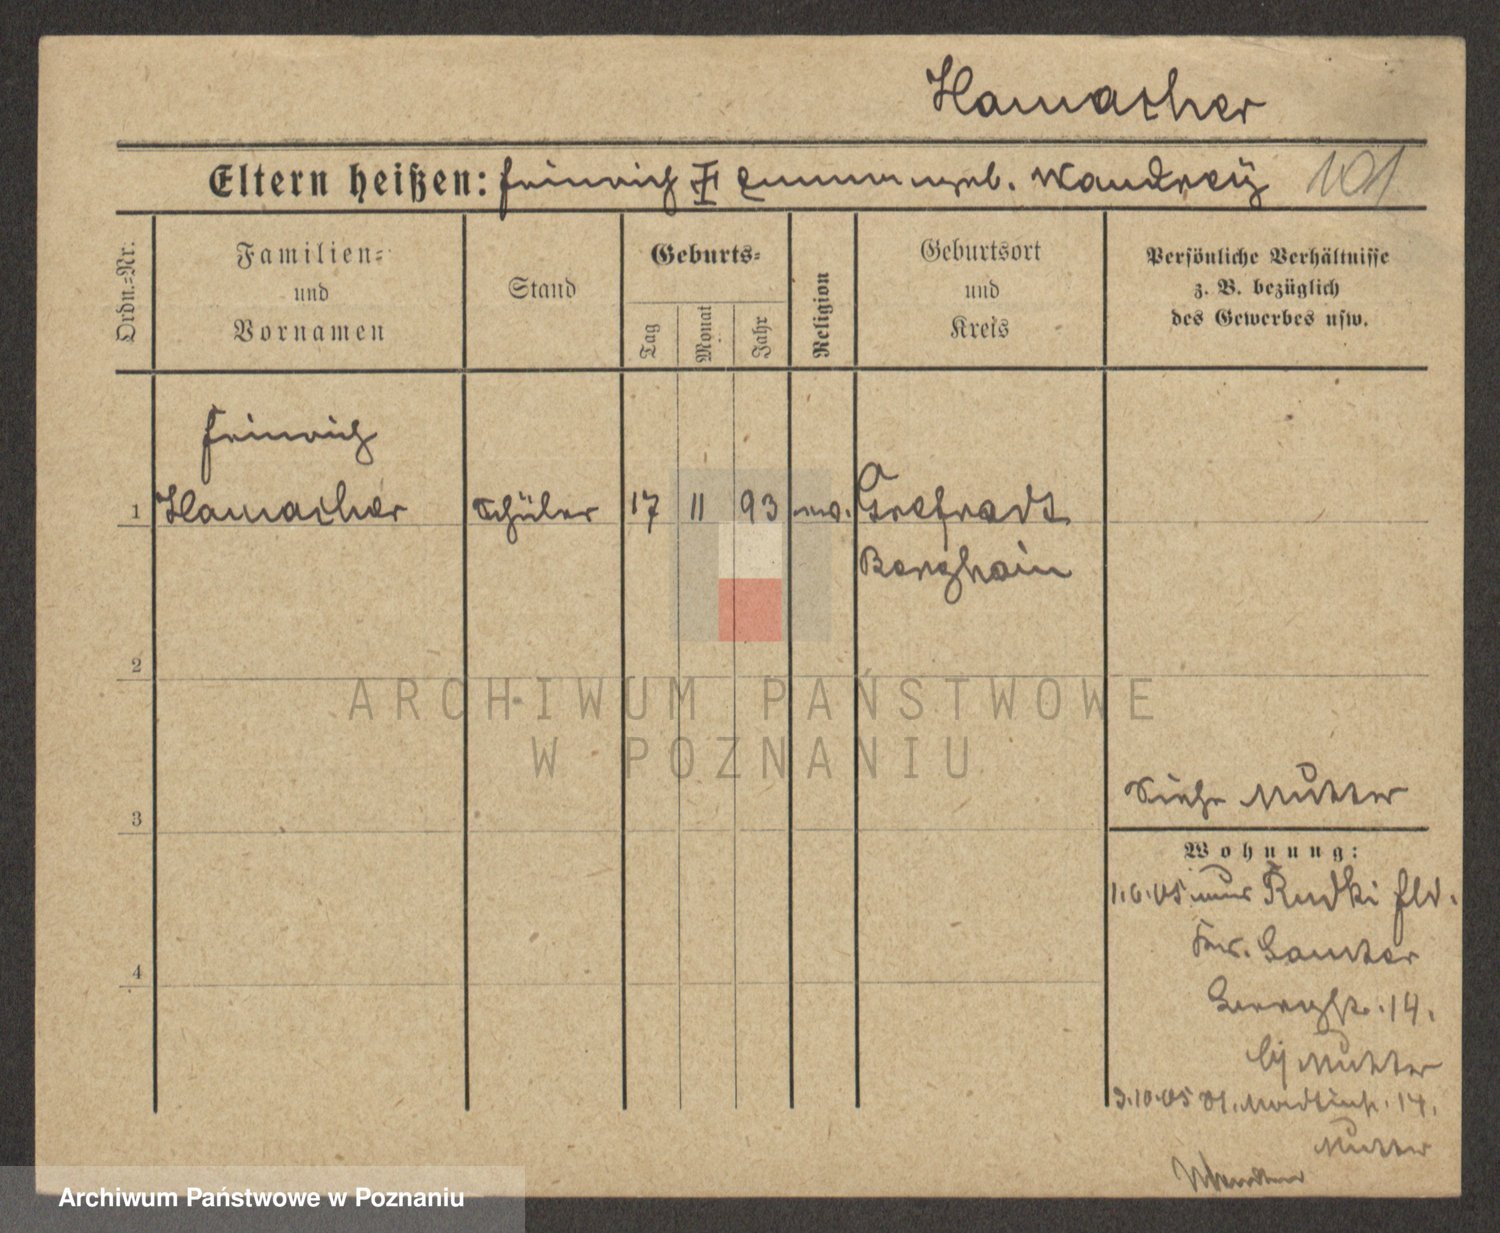 Hamacher
Eltern heißen: Heinrich ged. geb. Wandrey 101
Ordn.=Nr.
Familien=
und
Vornamen
Stand
Geburts=
Tag
Monat
Jahr
Religion
Geburtsort
und
Kreis
Persönliche Verhältnisse
z. B. bezüglich
des Gewerbes usw.
Heinrich
1 Hamacher Schüler 17 11 93 ev. Grefradt
Bergheim
2
ARCHIWUM PAŃSTWOWE
W POZNANIU
Siehe Mutter
3
Wohnung:
1.6.05 Rudki
4
14.
bei Mutter
3.10.05 14.
Mutter
Archiwum Państwowe w Poznaniu